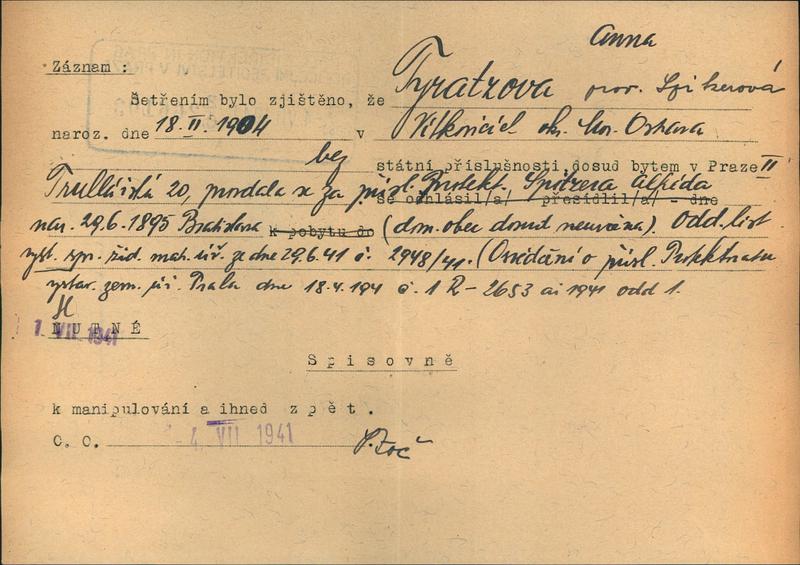 Anna
Záznam :
Šetřením bylo zjištěno, že Tyratzova prov. Spitzerová
naroz. dne 18. II. 1904 v Vítkovicích okr. Mor. Ostrava
bez státní příslušnosti, dosud bytem v Praze II
20, provdala se za přísl. Protekt. Spitzera Alfréda
se odhlásil/a/ přesídlil/a/ - dne
nar. 29.6.1895 Bratislava k pobytu do (dom. obec dosud neuvedena). Odd. list
vyst. spr. žid. mat. úř. ze dne 29.6.41 č. 2948/41. (Osvědčení o přísl. Protektorátu
vystav. zem. úř. Praha dne 18.4.194 č. 1 R - 2653 ai 1941 odd 1.
NUTNÉ
1. VII 1941
Spisovně
k manipulování a ihned zpět.
O. O.
- 4. VII 1941